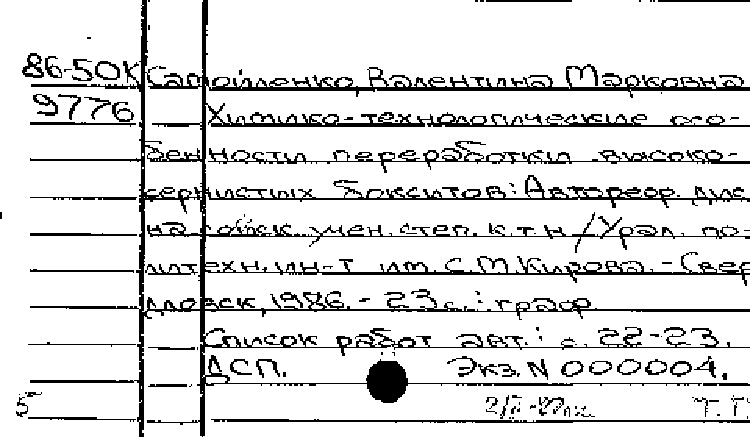 86-50К Самойленко, Валентина Марковна
9776 Химико-технологические осо-
бенности переработки высоко-
сернистых бокситов: Автореф. дис
на соиск. учен. степ. к.т.н / Урал. по-
литехн. ин-т им. С.М.Кирова. - Свер
дловск, 1986. - 23 с.: граф.
Список работ авт.: с. 22-23.
ДСП. Экз. N 000004.
5